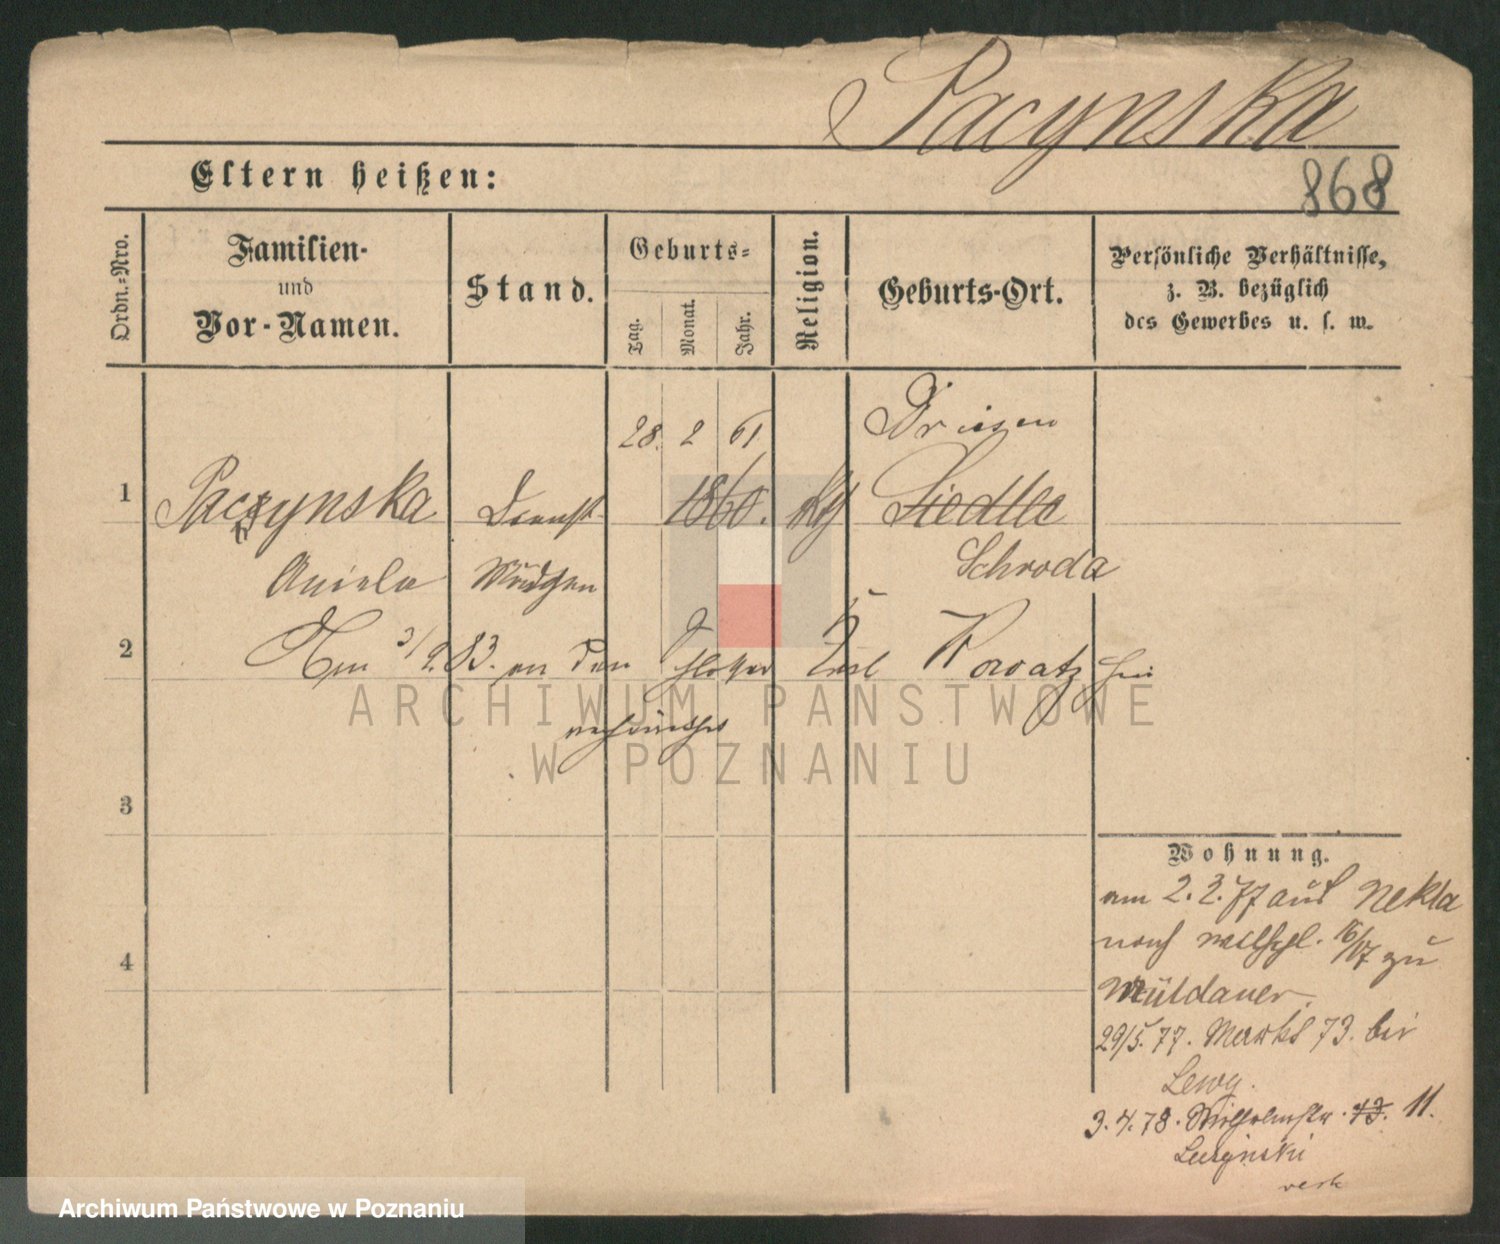 Pacynska
868
Eltern heißen:
Ordn.-Nro.
Familien-
und
Vor-Namen.
Stand.
Geburts-
Tag.
Monat.
Jahr.
Religion.
Geburts-Ort.
Persönliche Verhältnisse,
z. B. bezüglich
des Gewerbes u. s. w.
28. 2 61 Driesen
1 Paczynska Dienst 1860. Siedlec
Aniela Mädchen Schroda
2 Am 3/9. 83. an den Karl Kowatz
ARCHIWUM PAŃSTWOWE
W POZNANIU
3
4
Wohnung.
am 2. 2. 77 aus Nekla
nach 16/17 zu
29/5. 77. Markt 73. bei
Lewy.
3. 4. 78. Wilhelmstr. 13. 11.
Archiwum Państwowe w Poznaniu